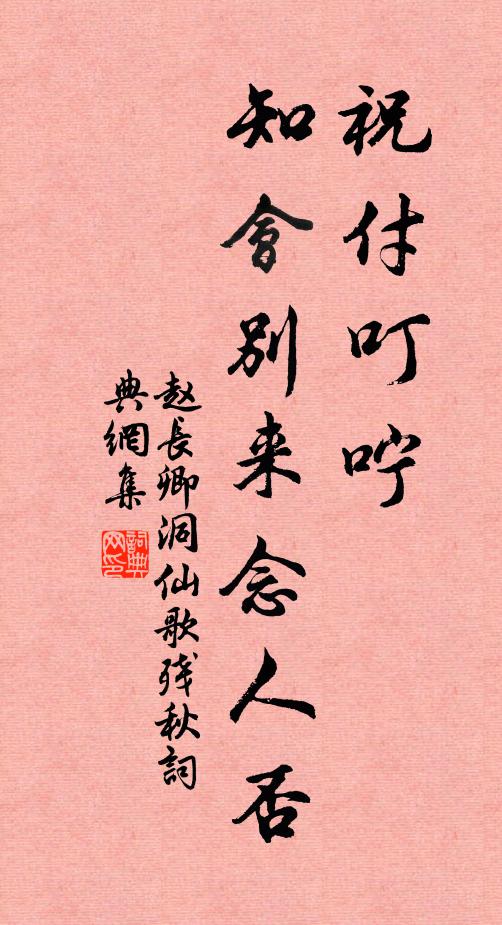 祝付叮咛
知會别来念人否
赵長卿洞仙歌残秋詞
典網集
詞典网印